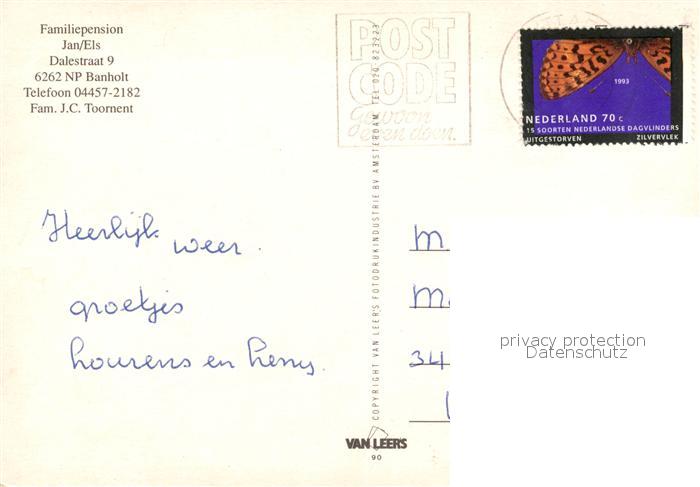 Familiepension
Jan/Els
Dalestraat 9
6262 NP Banholt
Telefoon 04457-2182
Fam. J.C. Toornent
POST
CODE
Gewoon
even doen.
1993
NEDERLAND 70 c
15 SOORTEN NEDERLANDSE DAGVLINDERS
UITGESTORVEN ZILVERVLEK
Heerlijk weer.
groetjes
Lourens en Henny.
COPYRIGHT VAN LEER'S FOTODRUKINDUSTRIE BV AMSTERDAM, TEL 020-823223
M
M
34
privacy protection
Datenschutz
VAN LEER'S
90